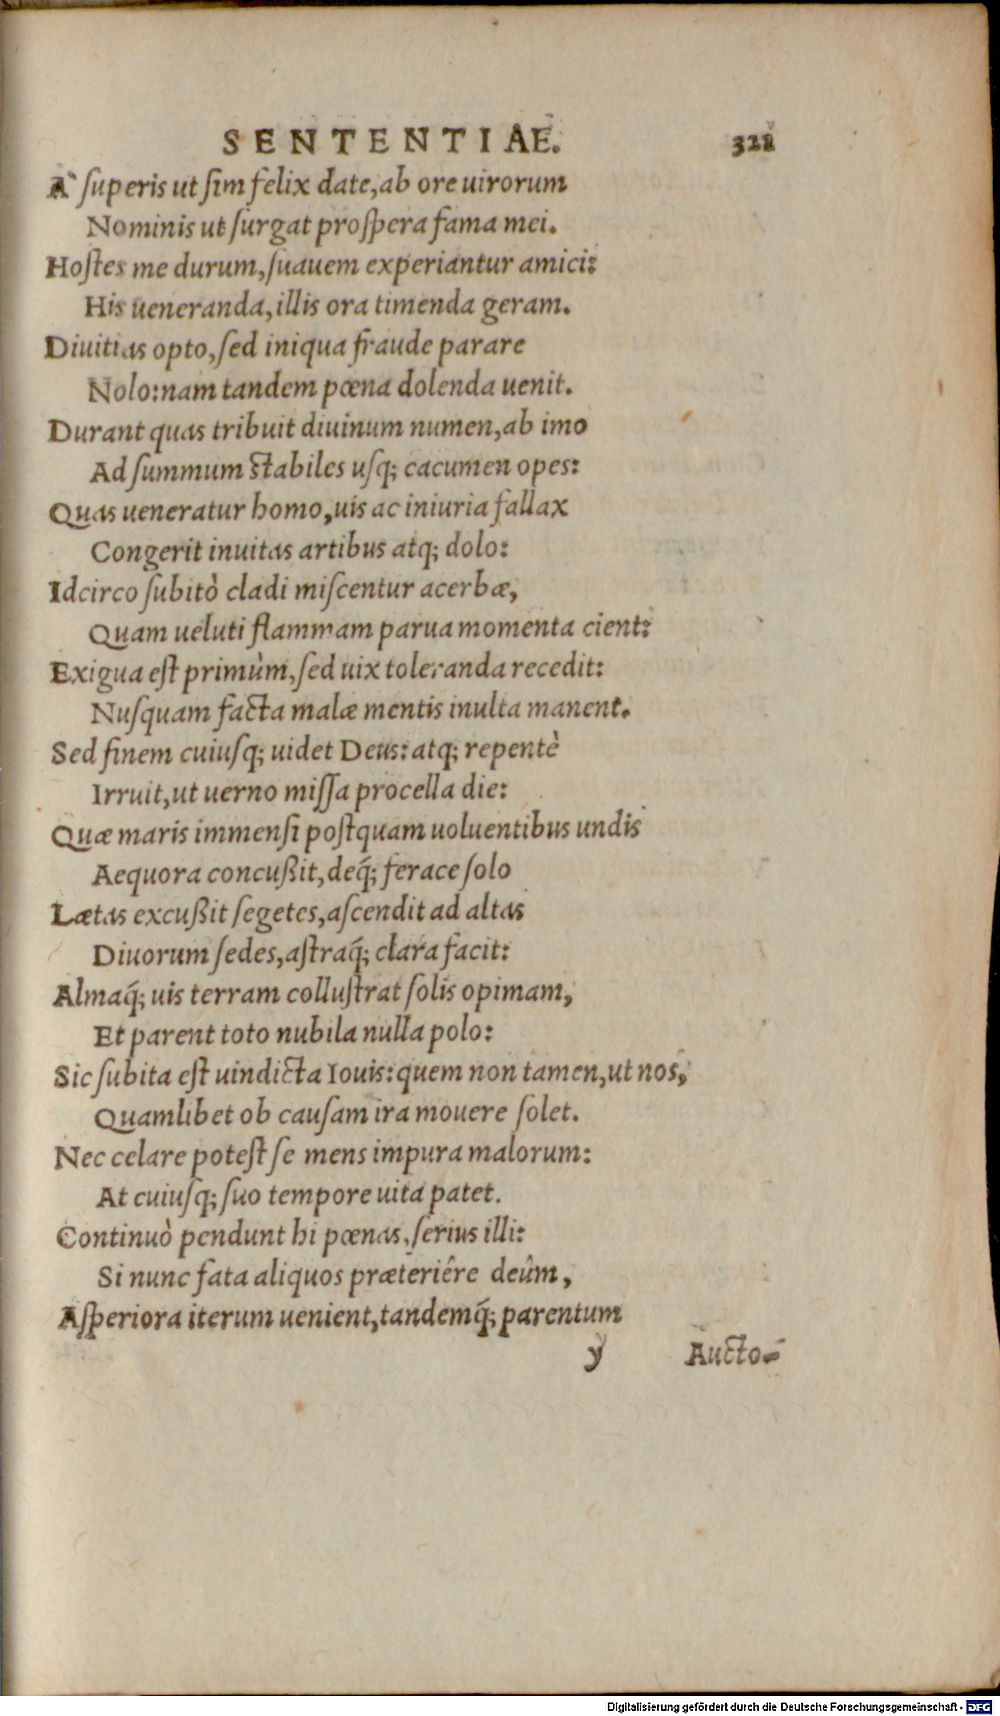 SENTENTIAE. 321
A` ſuperis ut ſim felix date, ab ore uirorum
Nominis ut ſurgat proſpera fama mei.
Hoſtes me durum, ſuauem experiantur amici:
His ueneranda, illis ora timenda geram.
Diuitias opto, ſed iniqua fraude parare
Nolo: nam tandem pœna dolenda uenit.
Durant quas tribuit diuinum numen, ab imo
Ad ſummum ſtabiles uſq; cacumen opes:
Quas ueneratur homo, uis ac iniuria fallax
Congerit inuitas artibus atq; dolo:
Idcirco ſubitò cladi miſcentur acerbæ,
Quam ueluti flammam parua momenta cient:
Exigua eſt primùm, ſed uix toleranda recedit:
Nuſquam facta malæ mentis inulta manent.
Sed finem cuiuſq; uidet Deus: atq; repentè
Irruit, ut uerno miſſa procella die:
Quæ maris immenſi poſtquam uoluentibus undis
Aequora concußit, deq́; ferace ſolo
Lætas excußit ſegetes, aſcendit ad altas
Diuorum ſedes, aſtraq́; clara facit:
Almaq́; uis terram colluſtrat ſolis opimam,
Et parent toto nubila nulla polo:
Sic ſubita eſt uindicta Iouis: quem non tamen, ut nos,
Quamlibet ob cauſam ira mouere ſolet.
Nec celare poteſt ſe mens impura malorum:
At cuiuſq; ſuo tempore uita patet.
Continuò pendunt hi pœnas, ſerius illi:
Si nunc fata aliquos præteriêre deûm,
Aſperiora iterum uenient, tandemq́; parentum
y Aucto-
Digitalisierung gefördert durch die Deutsche Forschungsgemeinschaft - DFG